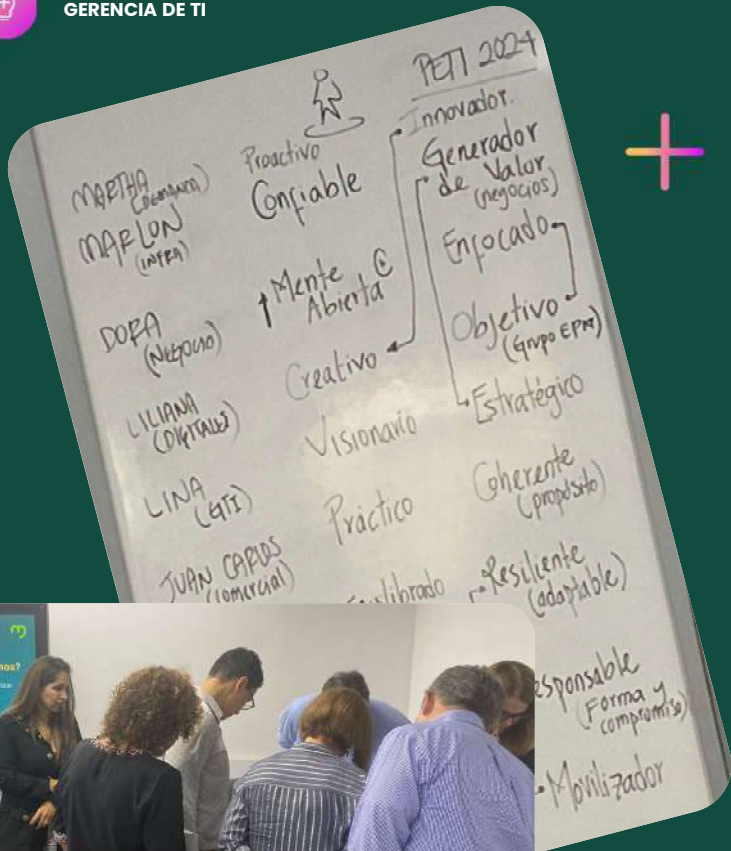 GERENCIA DE TI
PETI 2024
MARTHA
MARLON
(INFRA)
DORA
(Negocio)
LILIANA
(DIGITALES)
LINA
(GTI)
JUAN CARLOS
(comercial)
Proactivo
Confiable
Mente
Abierta
Creativo
Visionario
Práctico
Innovador.
Generador
de Valor
(negocios)
Enfocado
Objetivo
(Grupo EPM)
Estratégico
Coherente
(propósito)
Resiliente
(adaptable)
esponsable
(Forma y
compromiso)
Movilizador